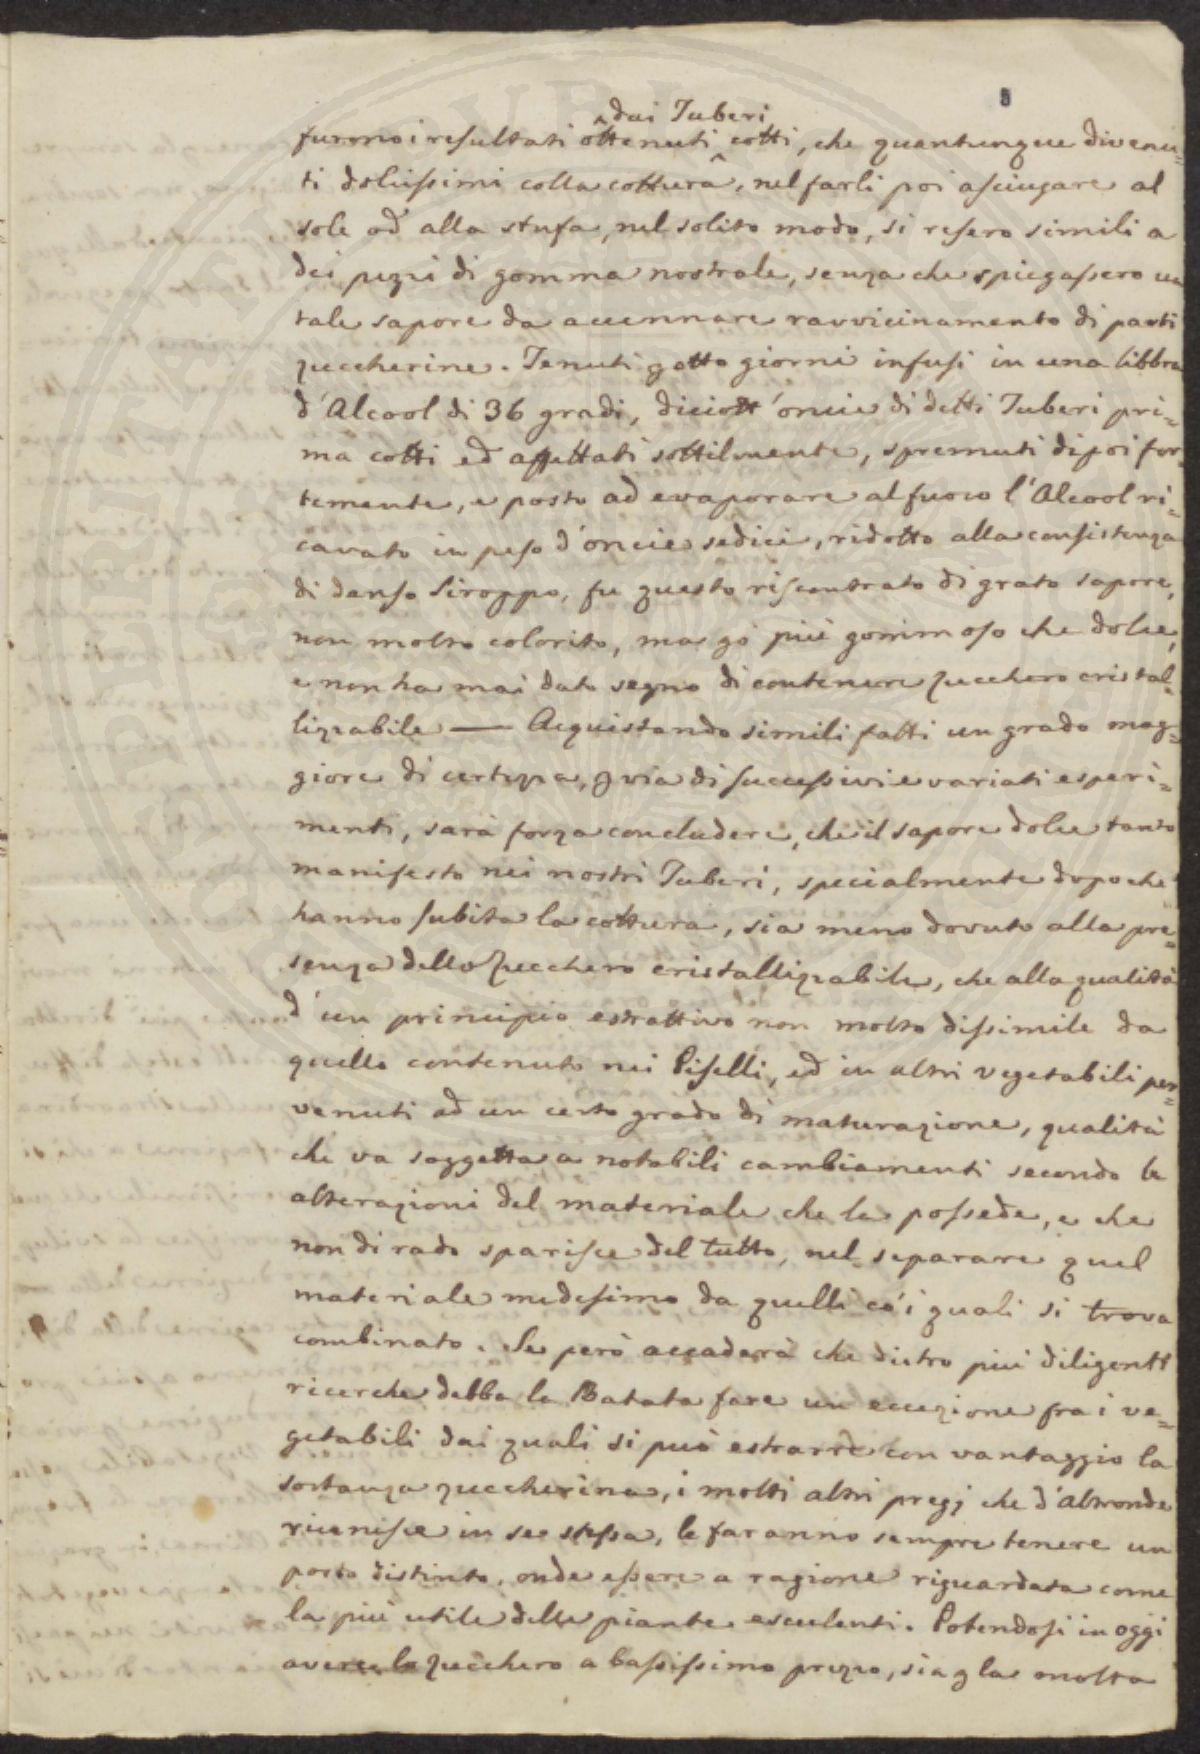 5
dai Tuberi
furono i resultati ottenuti cotti, che quantunque divenu=
ti dolcissimi colla cottura, nel farli poi asciugare al
sole od alla stufa, nel solito modo, si resero simili a
dei pezzi di gomma nostrale, senza che spiegassero un
tale sapore da accennare ravvicinamento di parti
zuccherine. Tenuti p otto giorni infusi in una libbra
d'Alcool di 36 gradi, diciott'oncie di detti Tuberi pri=
ma cotti ed affettati sottilmente, spremuti dipoi for=
temente, e posto ad evaporare al fuoco l'Alcool ri=
cavato in peso d'oncie sedici, ridotto alla consistenza
di denso Siroppo, fu questo riscontrato di grato sapore,
non molto colorito, ma più gommoso che dolce,
e non ha mai dato segno di contenere zucchero cristal=
lizzabile — Acquistando simili fatti un grado mag=
giore di certezza, p via di successivi e variati esperi=
menti, sarà forza concludere, che il sapore dolce tanto
manifesto nei nostri Tuberi, specialmente dopo che
hanno subita la cottura, sia meno dovuto alla pre=
senza dello Zucchero cristallizzabile, che alla qualità
d'un principio estrattivo non molto dissimile da
quello contenuto nei Piselli, ed in altri vegetabili per=
venuti ad un certo grado di maturazione, qualità
che va soggetta a notabili cambiamenti secondo le
alterazioni del materiale che la possede, e che
non di rado sparisce del tutto, nel separare quel
materiale medesimo da quelli co'i quali si trova
combinato. Se però accaderà che dietro più diligenti
ricerche debba la Batata fare un eccezione fra i ve=
getabili dai quali si può estrarre con vantaggio la
sostanza zuccherina, i molti altri pregj che d'altronde
riunisce in se stessa, le faranno sempre tenere un
posto distinto, onde essere a ragione riguardata come
la più utile delle piante esculenti. Potendosi in oggi
avere lo zucchero a bassissimo prezzo, sia p la molta